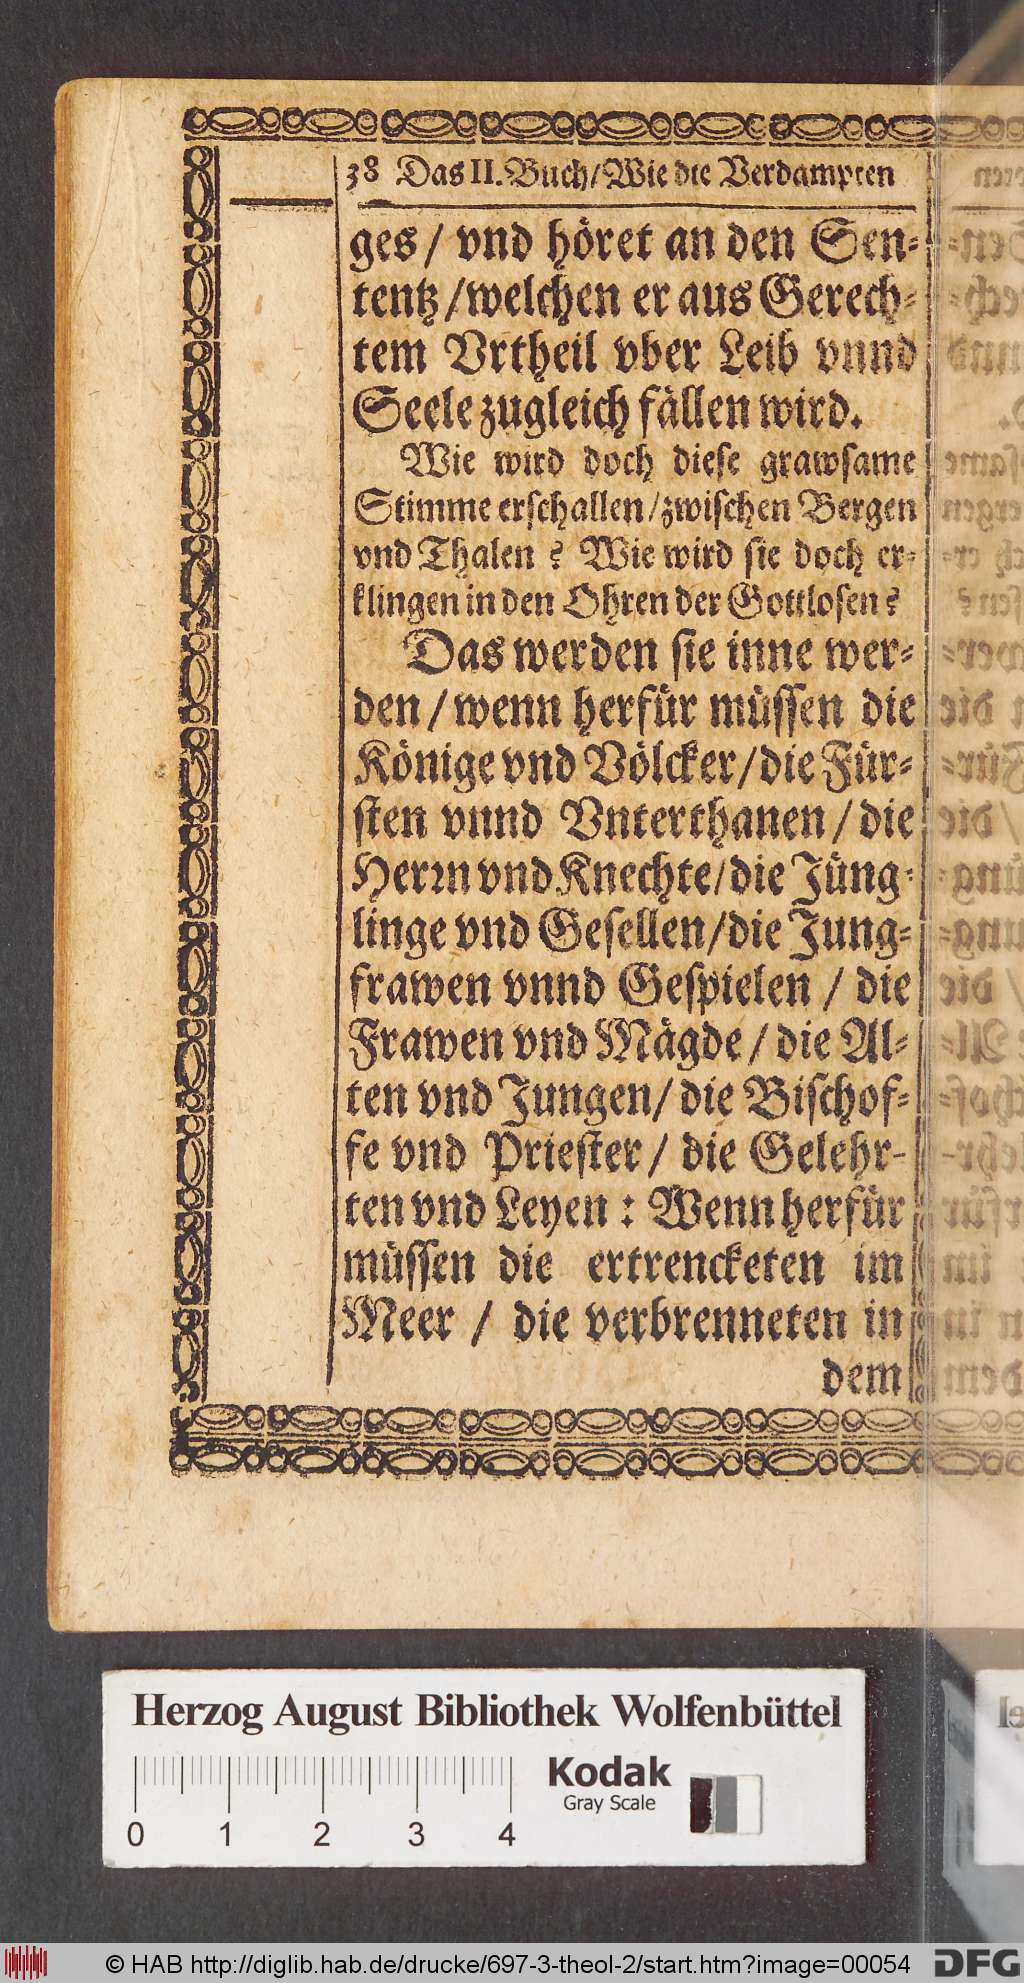 38 Das II. Buch/Wie die Verdampten
ges / vnd höret an den Sen-
tentz/welchen er aus Gerech-
tem Vrtheil vber Leib vnnd
Seele zugleich fällen wird.
Wie wird doch diese grawsame
Stimme erschallen/zwischen Bergen
vnd Thalen ? Wie wird sie doch er-
klingen in den Ohren der Gottlosen?
Das werden sie inne wer-
den / wenn herfür müssen die
Könige vnd Völcker/die Für-
sten vnnd Vnterthanen / die
Herrn vnd Knechte/die Jüng-
linge vnd Gesellen/die Jung-
frawen vnnd Gespielen / die
Frawen vnd Mägde / die Al-
ten vnd Jungen/ die Bischof-
fe vnd Priester / die Gelehr-
ten vnd Leyen : Wenn herfür
müssen die ertrencketen im
Meer / die verbrenneten in
dem
Herzog August Bibliothek Wolfenbüttel
Kodak
Gray Scale
0 1 2 3 4
© HAB http://diglib.hab.de/drucke/697-3-theol-2/start.htm?image=00054
DFG